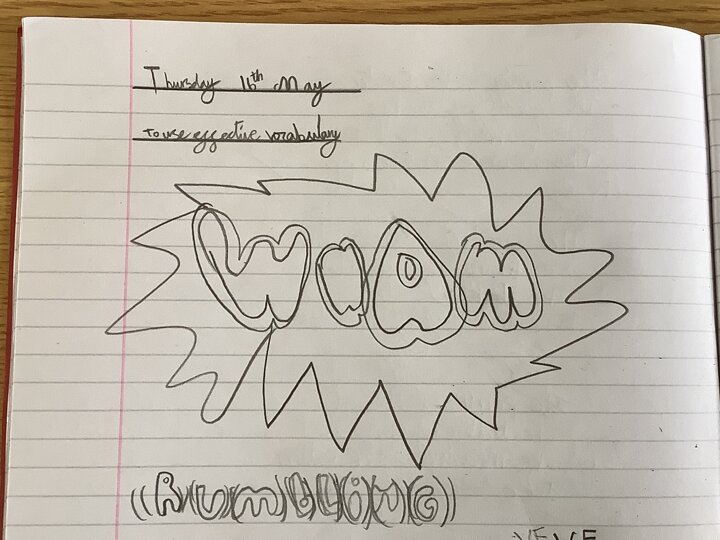 Thursday 16th May
to use effective vocabulary
WHAM
((RUMBLING))